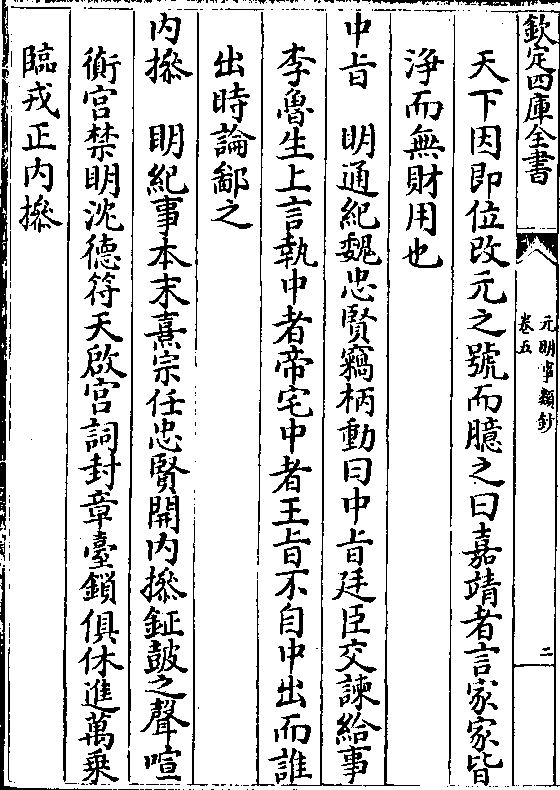 欽定四庫全書
元明事類鈔
卷五
二
天下因即位改元之號而臆之曰嘉靖者言家家皆
淨而無財用也
中旨　明通紀魏忠賢竊柄動曰中旨廷臣交諫給事
李魯生上言執中者帝宅中者王旨不自中出而誰
出時論鄙之
内操　明紀事本末熹宗任忠賢開内操鉦鼓之聲喧
衖宫禁明沈德符天啟宫詞封章臺鎖俱休進萬乗
臨戎正内操